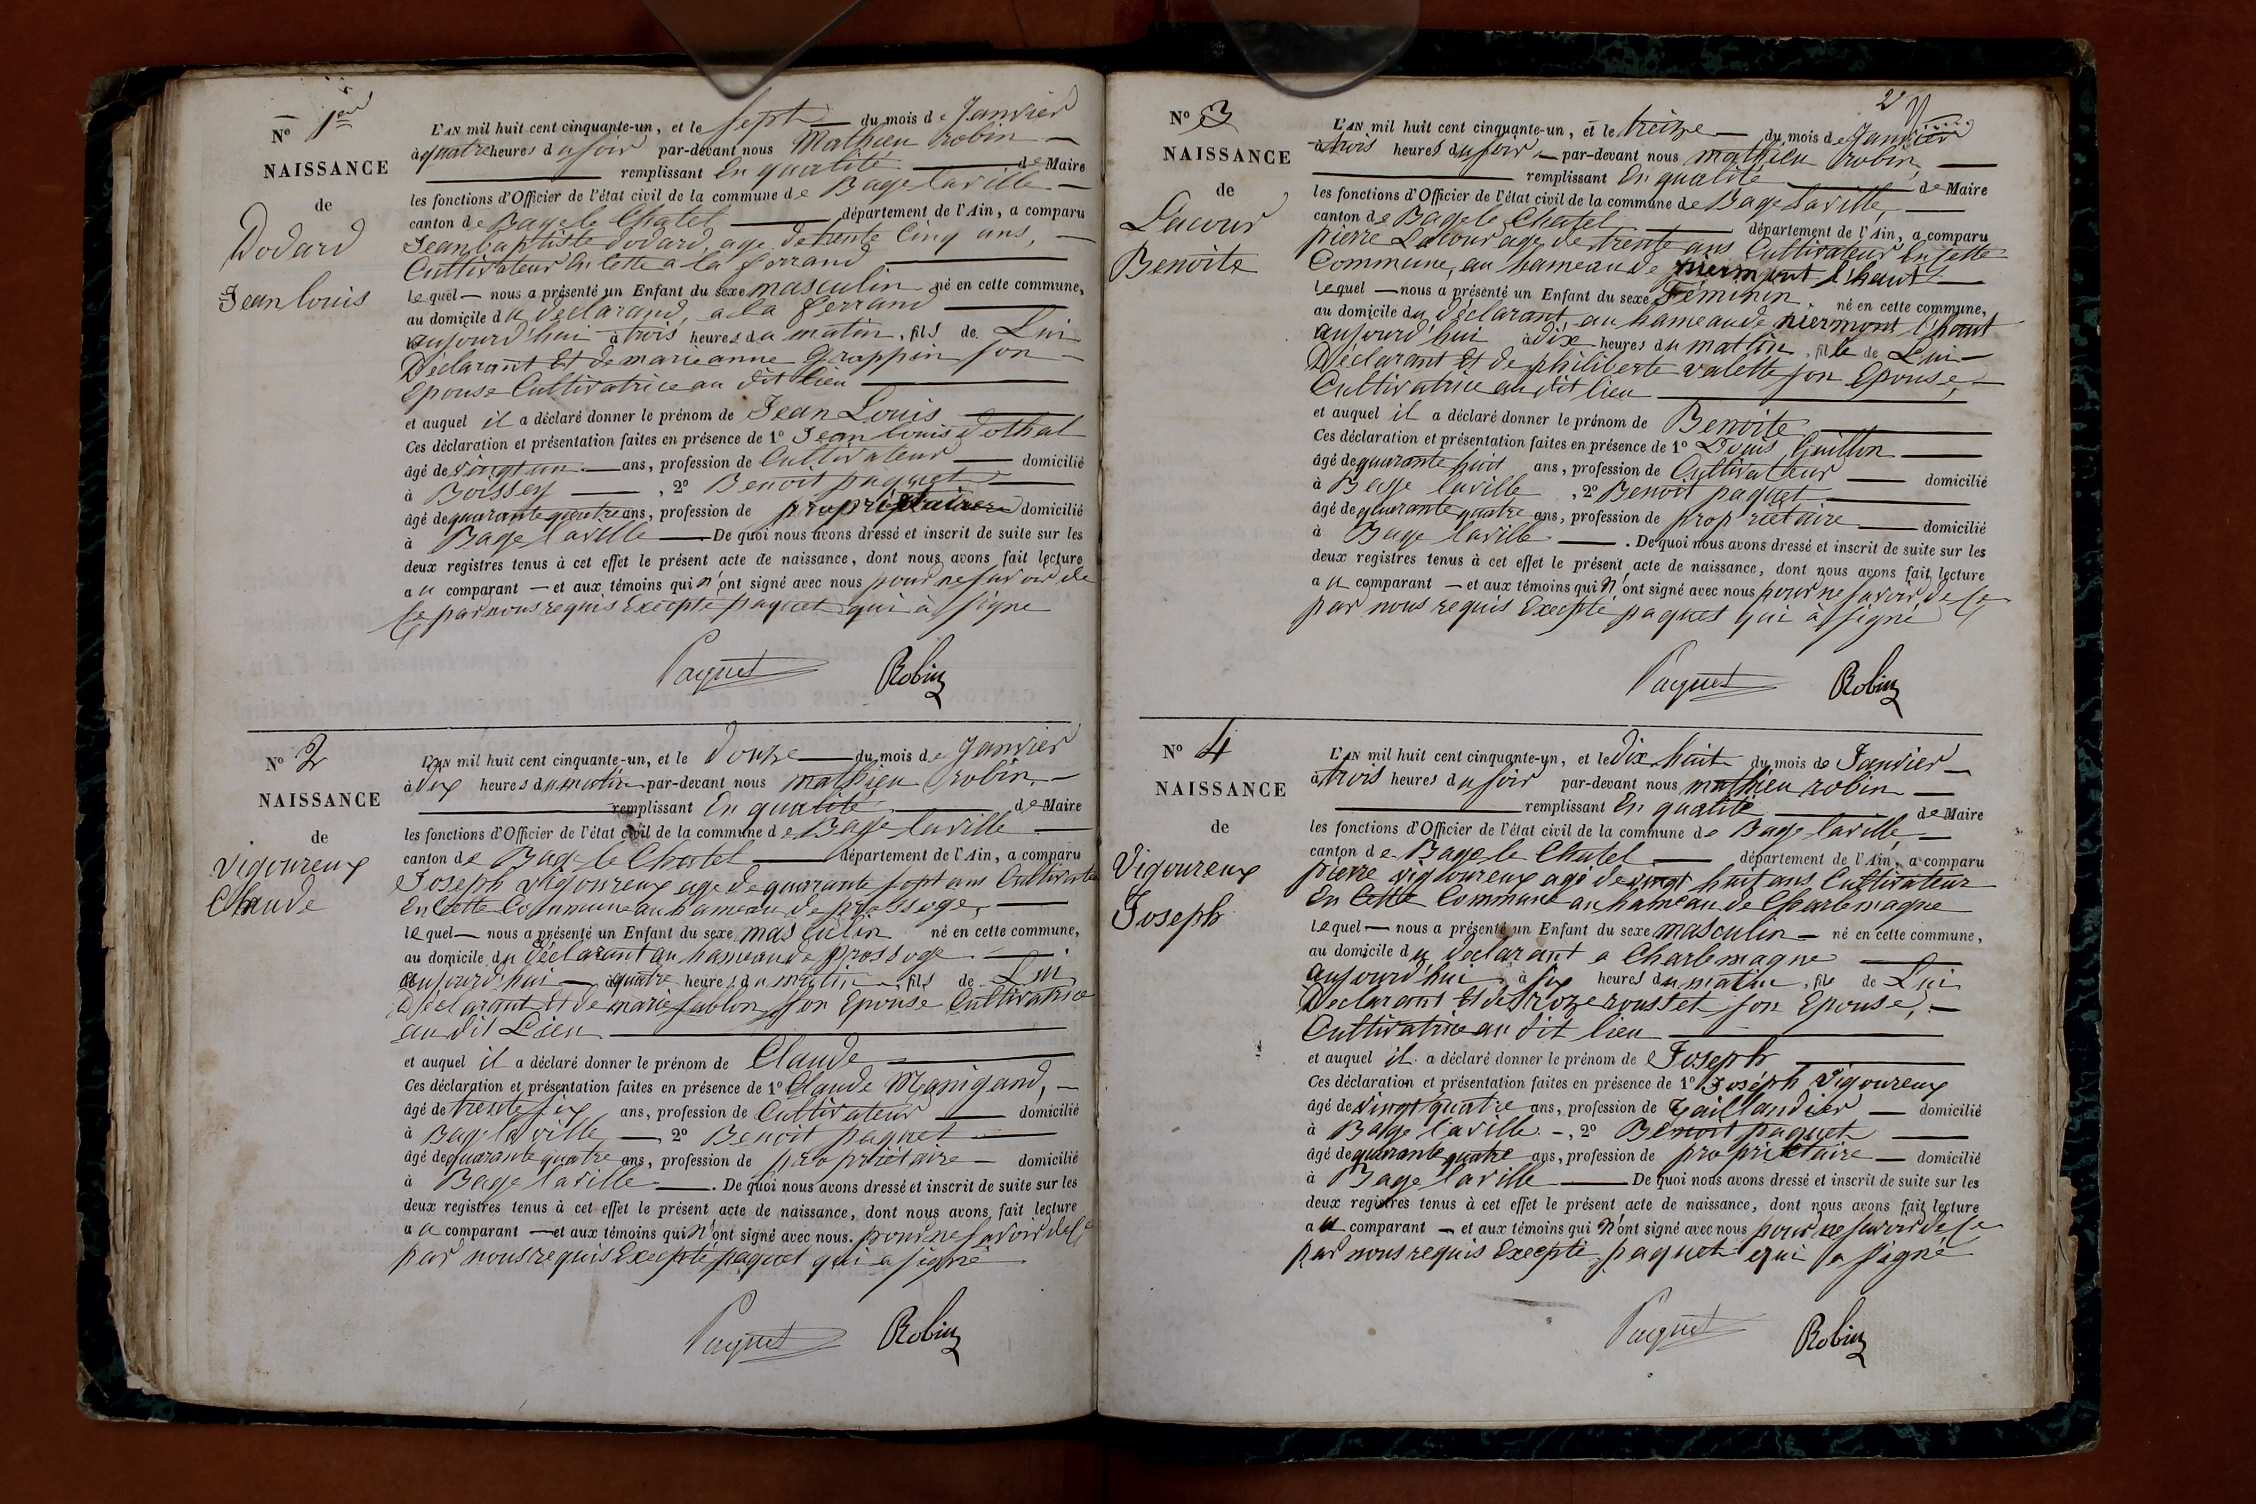 Nº 1er
NAISSANCE
de
Dodard
Jean louis
L'AN mil huit cent cinquante-un, et le sept du mois de Janvier
à quatre heures du soir par-devant nous Mathieu robin
remplissant En qualité de Maire
les fonctions d'Officier de l'état civil de la commune de Bage laville
canton de Bage le Chatel département de l'Ain, a comparu
Jean baptiste dodard, age de trente Cinq ans,
Cultivateur En cette a la ferrand
lequel nous a présenté un Enfant du sexe masculin né en cette commune,
au domicile du declarand, a la ferrand
aujourd'hui à trois heures du matin, fils de Lui
Déclarant Et de marie anne Grappin son
Epouse Cultivatrice au dit lieu
et auquel il a déclaré donner le prénom de Jean Louis
Ces déclaration et présentation faites en présence de 1º Jean louis dothal
âgé de vingt un ans, profession de Cultivateur domicilié
à Boissey, 2º Benoit paquet
âgé de quarante quatre ans, profession de propriétaire domicilié
à Bage laville De quoi nous avons dressé et inscrit de suite sur les
deux registres tenus à cet effet le présent acte de naissance, dont nous avons fait lecture
au comparant et aux témoins qui n'ont signé avec nous pour ne savoir de
ce par nous requis Excepté paquet qui à signé
Paquet Robin
Nº 2
NAISSANCE
de
Vigoureux
Claude
L'AN mil huit cent cinquante-un, et le douze du mois de Janvier
à dix heures du matin par-devant nous mathieu robin
remplissant En qualité de Maire
les fonctions d'Officier de l'état civil de la commune de Bage laville
canton de Bage le Chatel département de l'Ain, a comparu
Joseph vigoureux age de quarante sept ans Cultivateur
En Cette Commune au hameau de
lequel nous a présenté un Enfant du sexe masculin né en cette commune,
au domicile du déclarant au hameau de
aujourd'hui à quatre heures du matin, fils de Lui
Déclarant Et de marie sablon son Epouse Cultivatrice
au dit Lieu
et auquel il a déclaré donner le prénom de Claude
Ces déclaration et présentation faites en présence de 1º Claude Manigand,
âgé de trente six ans, profession de Cultivateur domicilié
à Bage laville 2º Benoit paquet
âgé de quarante quatre ans, profession de propriétaire domicilié
à Bage laville. De quoi nous avons dressé et inscrit de suite sur les
deux registres tenus à cet effet le présent acte de naissance, dont nous avons fait lecture
au comparant et aux témoins qui n'ont signé avec nous. pour ne savoir de ce
par nous requis Excepté paquet qui a signé
Paquet Robin
2
Nº 3
NAISSANCE
de
Lacour
Benoite
L'AN mil huit cent cinquante-un, et le treize du mois de Janvier
à trois heures du soir par-devant nous mathieu robin,
remplissant En qualité de Maire
les fonctions d'Officier de l'état civil de la commune de Bage laville,
canton de Bage le Chatel département de l'Ain, a comparu
pierre Lacour age de trente ans Cultivateur En cette
Commune, au hameau de niermont l'haut
lequel nous a présenté un Enfant du sexe Féminin, né en cette commune,
au domicile du déclarant au hameau de niermont l'haut
aujourd'hui à dix heures du mattin, fille de Lui
Déclarant Et de philiberte valette son Epouse,
Cultivatrice au dit lieu
et auquel il a déclaré donner le prénom de Benoite
Ces déclaration et présentation faites en présence de 1º Louis Guillon
âgé de quarante huit ans, profession de Cultivateur domicilié
à Bage laville, 2º Benoit paquet
âgé de quarante quatre ans, profession de propriétaire domicilié
à Bage laville. De quoi nous avons dressé et inscrit de suite sur les
deux registres tenus à cet effet le présent acte de naissance, dont nous avons fait lecture
au comparant et aux témoins qui n'ont signé avec nous pour ne savoir de ce
par nous requis Excepté paquet qui à signé
Paquet Robin
Nº 4
NAISSANCE
de
Vigoureux
Joseph
L'AN mil huit cent cinquante-un, et le dix huit du mois de Janvier
à trois heures du soir par-devant nous mathieu robin
remplissant En qualité de Maire
les fonctions d'Officier de l'état civil de la commune de Bage laville,
canton de Bage le Chatel département de l'Ain, a comparu
pierre vigoureux agé de vingt huit ans Cultivateur
En Cette Commune au hameau de Charlemagne
lequel nous a présenté un Enfant du sexe masculin né en cette commune,
au domicile du declarant a Charlemagne
aujourd'hui à six heures du matin, fils de Lui
Declarant Et de roze roustet son Epouse,
Cultivatrice au dit lieu
et auquel il a déclaré donner le prénom de Joseph
Ces déclaration et présentation faites en présence de 1º Joséph Vigoureux
âgé de vingt quatre ans, profession de Taillandier domicilié
à Bage laville, 2º Benoit paquet
âgé de quarante quatre ans, profession de propriétaire domicilié
à Bage laville De quoi nous avons dressé et inscrit de suite sur les
deux registres tenus à cet effet le présent acte de naissance, dont nous avons fait lecture
au comparant et aux témoins qui n'ont signé avec nous pour ne savoir de ce
par nous requis Excepté paquet qui a signé
Paquet Robin